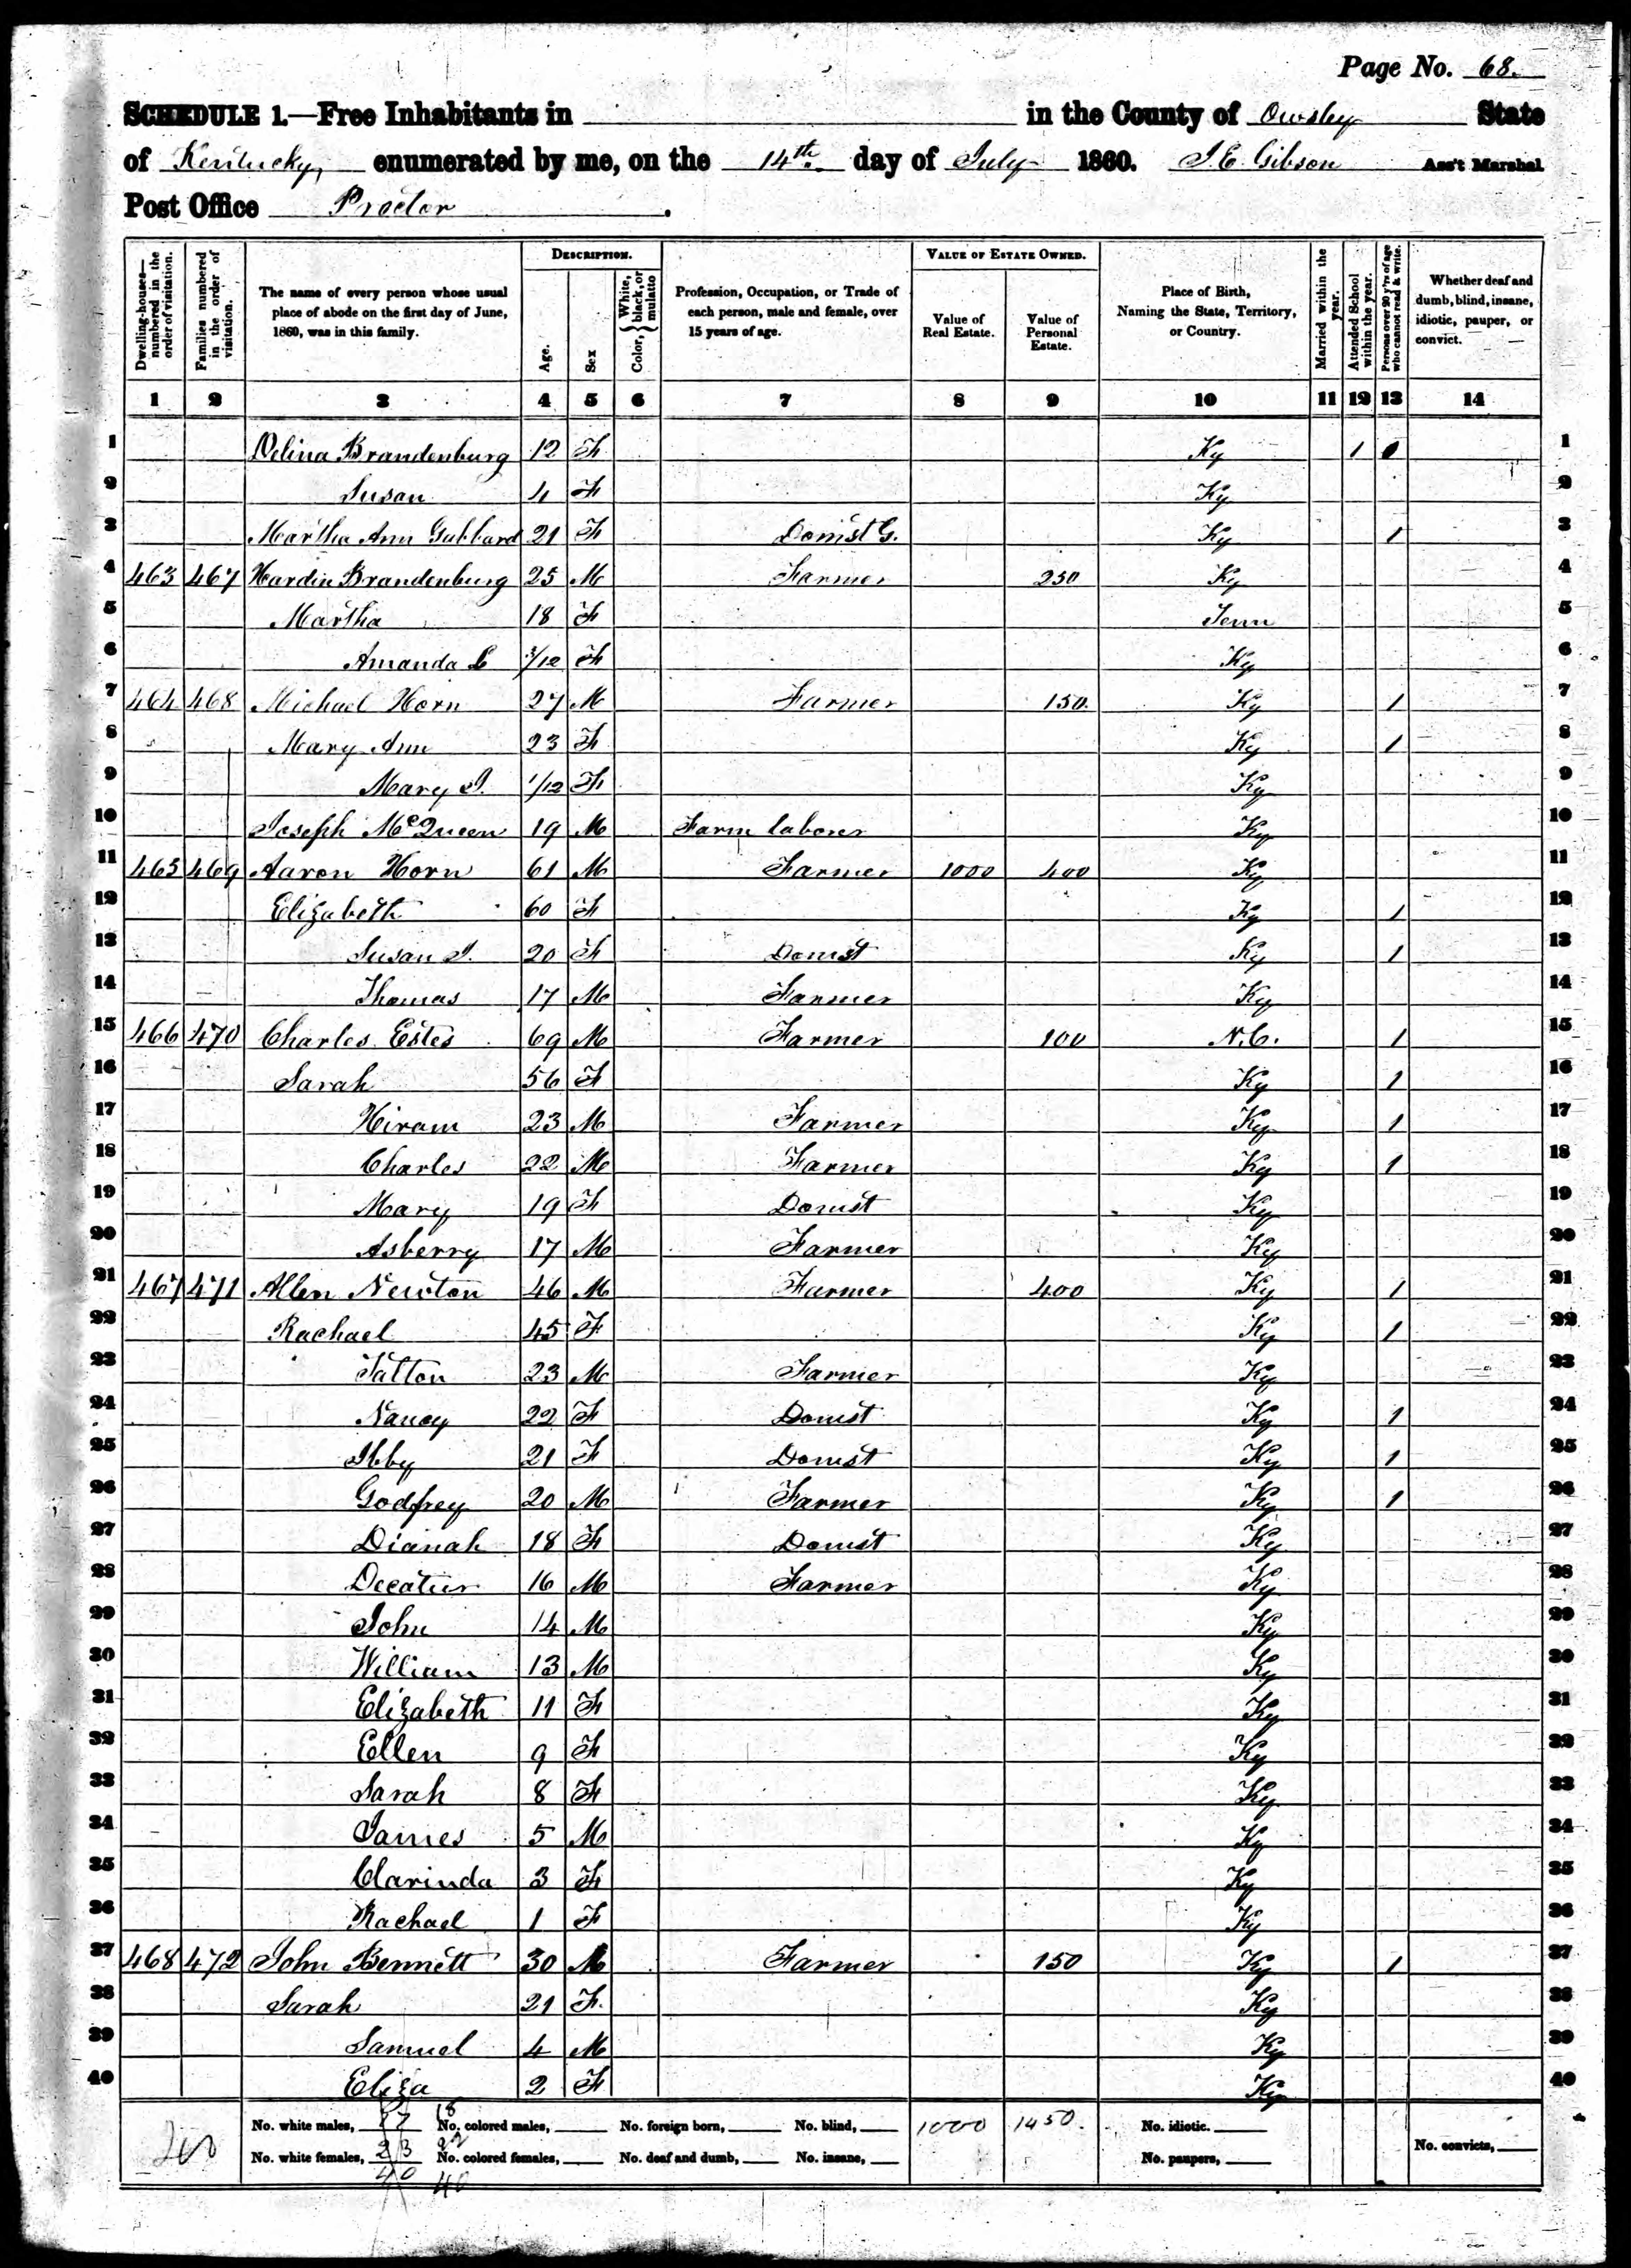 Page No. 68.
SCHEDULE 1.—Free Inhabitants in in the County of Owsley State
of Kentucky, enumerated by me, on the 14th day of July 1860. J. E. Gibson Ass't Marshal
Post Office Proctor.
Dwelling-houses—numbered in the order of visitation.
Families numbered in the order of visitation.
The name of every person whose usual place of abode on the first day of June, 1860, was in this family.
DESCRIPTION.
Age.
Sex
Color, White, black, or mulatto
Profession, Occupation, or Trade of each person, male and female, over 15 years of age.
VALUE OF ESTATE OWNED.
Value of Real Estate.
Value of Personal Estate.
Place of Birth, Naming the State, Territory, or Country.
Married within the year.
Attended School within the year.
Persons over 20 y'rs of age who cannot read & write.
Whether deaf and dumb, blind, insane, idiotic, pauper, or convict.
1 2 3 4 5 6 7 8 9 10 11 12 13 14
1 Brandenburg 12 F Ky 1 1
2 Susan 4 F Ky 2
3 Martha Ann Gabbard 21 F Domst G. Ky 1 3
4 463 467 Hardin Brandenburg 25 M Farmer 250 Ky 4
5 Martha 18 F Tenn 5
6 Amanda C 3/12 F Ky 6
7 464 468 Michael Horn 27 M Farmer 150. Ky 1 7
8 Mary Ann 23 F Ky 1 8
9 Mary J. 1/12 F Ky 9
10 Joseph McQueen 19 M Farm laborer Ky 10
11 465 469 Aaron Horn 61 M Farmer 1000 400 Ky 11
12 Elizabeth 60 F Ky 1 12
13 Susan J. 20 F Domst Ky 1 13
14 Thomas 17 M Farmer Ky 14
15 466 470 Charles Estes 69 M Farmer 100 N.C. 1 15
16 Sarah 56 F Ky 1 16
17 Hiram 23 M Farmer Ky 1 17
18 Charles 22 M Farmer Ky 1 18
19 Mary 19 F Domst Ky 19
20 Asberry 17 M Farmer Ky 20
21 467 471 Allen Newton 46 M Farmer 400 Ky 1 21
22 Rachael 45 F Ky 1 22
23 23 M Farmer Ky 23
24 Nancy 22 F Domst Ky 1 24
25 Ibby 21 F Domst Ky 1 25
26 Godfrey 20 M Farmer Ky 1 26
27 Dianah 18 F Domst Ky 27
28 Decatur 16 M Farmer Ky 28
29 John 14 M Ky 29
30 William 13 M Ky 30
31 Elizabeth 11 F Ky 31
32 Ellen 9 F Ky 32
33 Sarah 8 F Ky 33
34 James 5 M Ky 34
35 Clarinda 3 F Ky 35
36 Rachael 1 F Ky 36
37 468 472 John Bennett 30 M Farmer 150 Ky 1 37
38 Sarah 21 F. Ky 38
39 Samuel 4 M Ky 39
40 Eliza 2 F Ky 40
No. white males, 17 18 No. colored males, No. foreign born, No. blind, 1000 1450. No. idiotic.
No. white females, 23 22 No. colored females, No. deaf and dumb, No. insane, No. paupers, No. convicts,
40 40